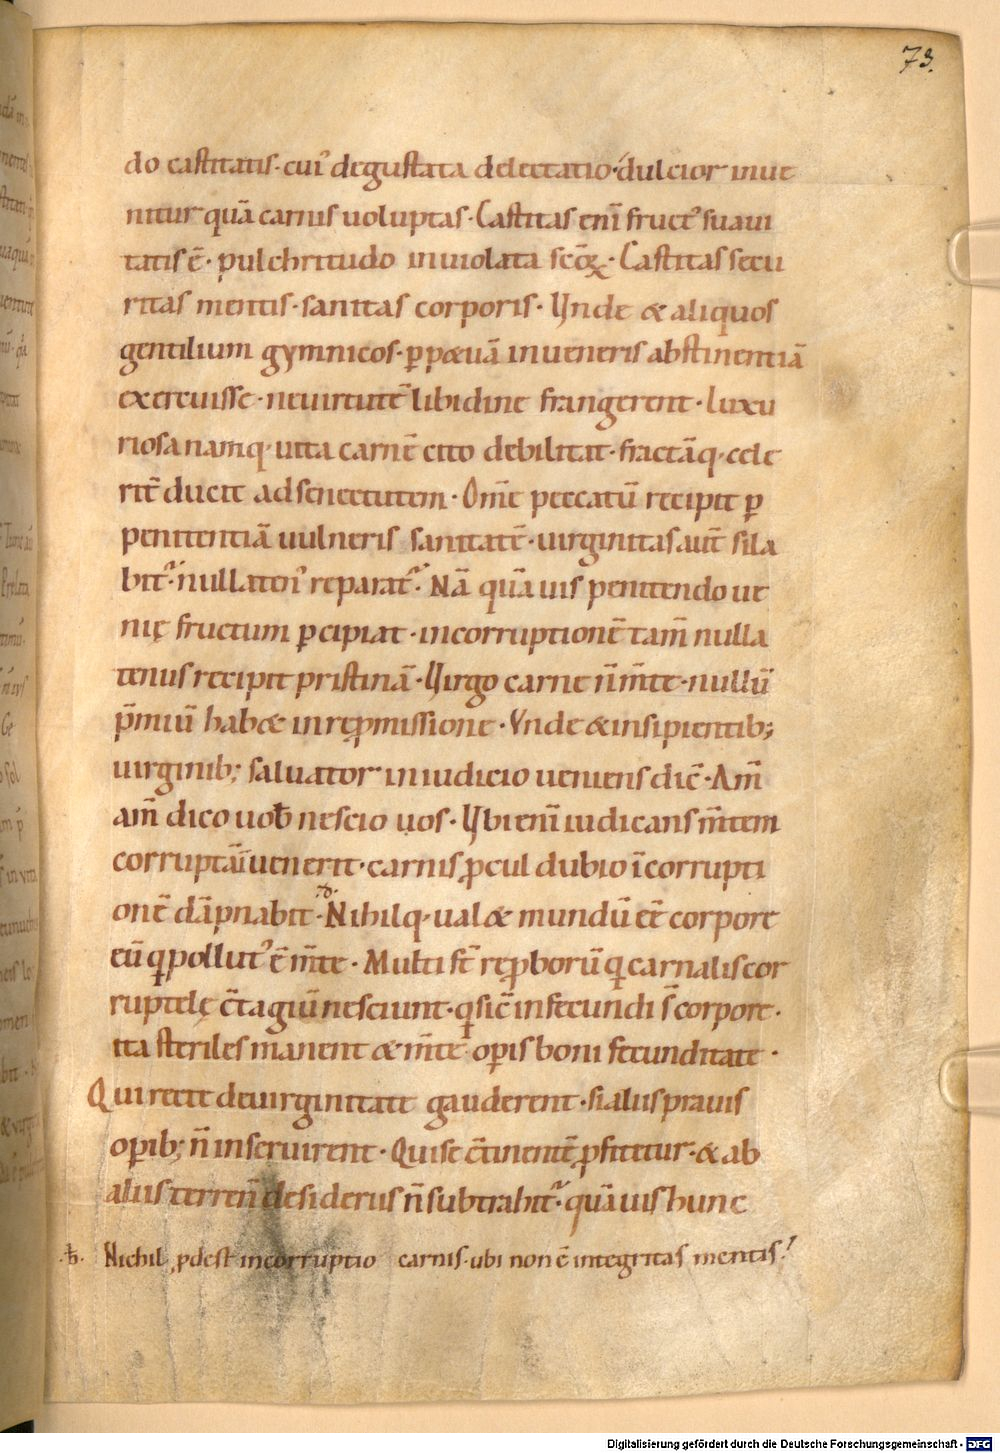 73.
do castitatis· cui᾽ degustata delectatio· dulcior inue
nitur quā carnis uoluptas· Castitas eni̅ fruct᾽ suaui
tatis ē· pulchritudo inuiolata sc̄oꝝ· Castitas secu
ritas mentis· sanitas corporis· Vnde & aliquos
gentilium gymnicos· ꝑp&uā in ueneris abstinentiā
exercuisse· ne uirtutē libidine frangerent· Luxu
riosa namq· uita carnē cito debilitat· fractāq· cele
rit̄ ducit ad senectutem· Om̄e peccatū recipit ꝑ
penitentiā uulneris sanitatē· uirginitas aut̄ si la
bit᷑· nullaten᾽ reparat᷑· Nā quā uis penitendo ue
nię fructum ꝑcipiat· incorruptionē tam̄ nulla
tenus recipit pristinā· Virgo carne n̄ m̄te· nullū
p̄miū hab& in reꝓmissione· Vnde & insipientib;
uirginib; saluator in iudicio ueniens dic̄· Am̄
am̄ dico uob̄ nescio uos· Vbi eni̅ iudicans m̄tem
corruptā inuenerit· carnis ꝓcul dubio īcorrupti
onē dāpnabit· Nihilq· ual& mundū eē corpore
eū q̇ pollut᾽ ē m̄te· Multi st̄ reꝓborū q̇ carnalis cor
ruptelę c̄tagiū nesciunt· q̇ sic̄ infecundi s̄ corpore·
ita steriles manent & m̄te oꝑis boni fecunditate·
Qui recte de uirginitate gauderent· si aliis prauis
oꝑib; n̄ inseruirent· Qui se c̄tinentē ꝓfitetur· & ab
aliis terren̄ desideriis n̄ subtrahit᷑· quā uis hunc
·ħ· Nichil ꝓdest incorruptio carnis· ubi non ē integritas mentis·
Digitalisierung gefördert durch die Deutsche Forschungsgemeinschaft - DFG